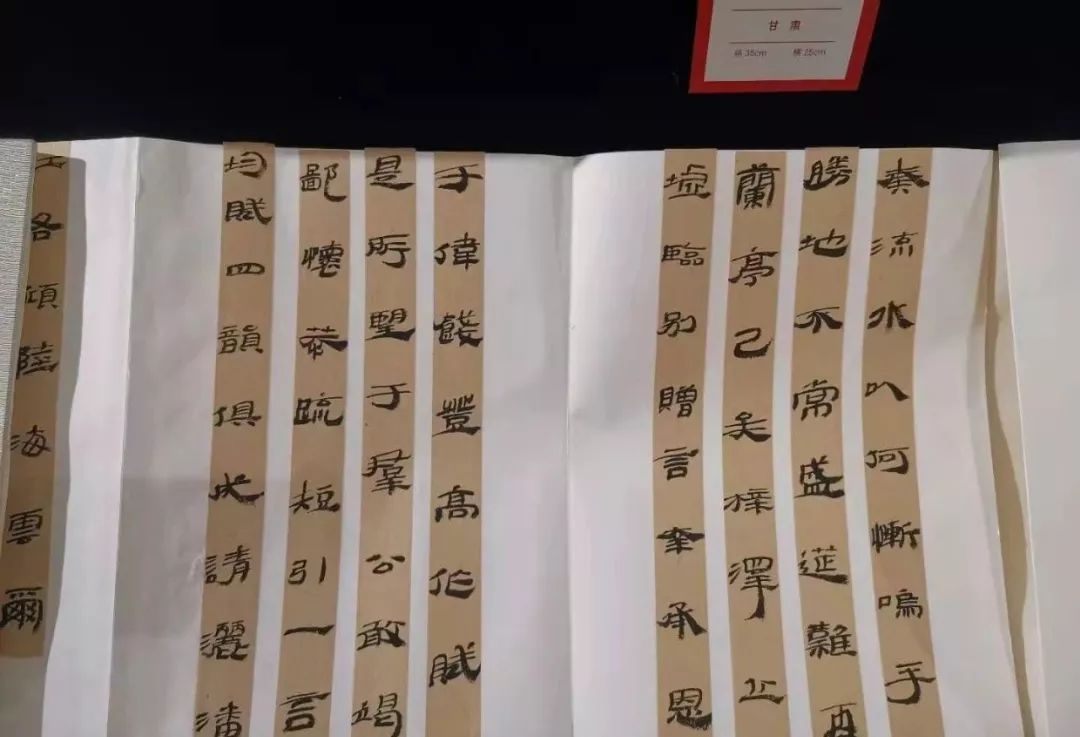 甘肃
35cm 横25cm
奏流水以何慚嗚乎
勝地不常盛筵難再
蘭亭已矣梓澤丘
墟臨別贈言幸承恩
于偉餞登高作賦
是所望于羣公敢竭
鄙懷恭疏短引一言
均賦四韻俱成請灑潘
江各傾陸海雲爾